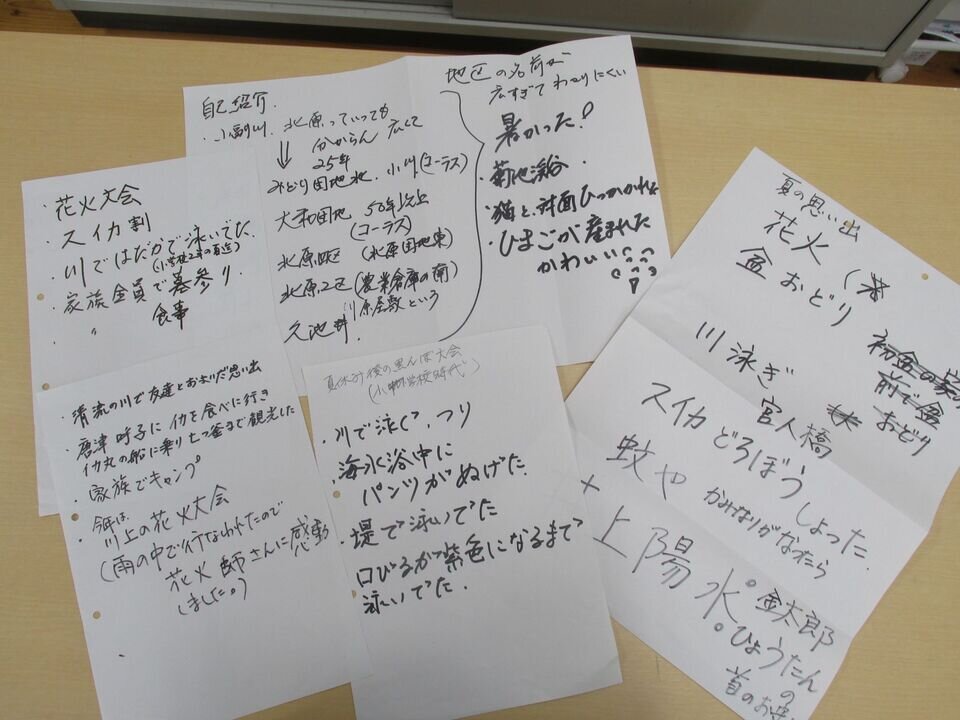 自己紹介
・小副川、北原っていっても
分からん 広くて
25年
みどり団地北、小川(コーラス)
大和団地 50年以上
(コーラス)
北原1区(北原団地東)
北原2区(農業倉庫の南)
川原屋敷という
久池井.
地区の名前が
広すぎてわかりにくい
暑かった!
・菊池渓谷
・猫と、対面ひっかかれた
・ひまごが産まれた
かわいい
・花火大会
・スイカ割
・川ではだかで泳いでた.
(小学校2年の頃迄)
・家族全員で墓参り
〃 食事
・清流の川で友達とおよいだ思い出
・唐津 呼子にイカを食べに行き
イカ丸の船に乗り七つ釜まで観光した
・家族でキャンプ
今年は
川上の花火大会
(雨の中で行なわれたので
花火師さんに感動
しました。)
夏休み後の黒んぼ大会
(小学校時代)
・川で泳ぐ、つり
・海水浴中に
パンツがぬげた.
・堤で泳いでた
口びるが紫色になるまで
泳いでた.
夏の思い出
花火
盆おどり
初盆の家の
前で盆
おどり
川泳ぎ
官人橋
スイカどろぼう しょった.
蚊や かみなりがなったら
+
上陽水
金太郎
ひょうたん
の
首のお